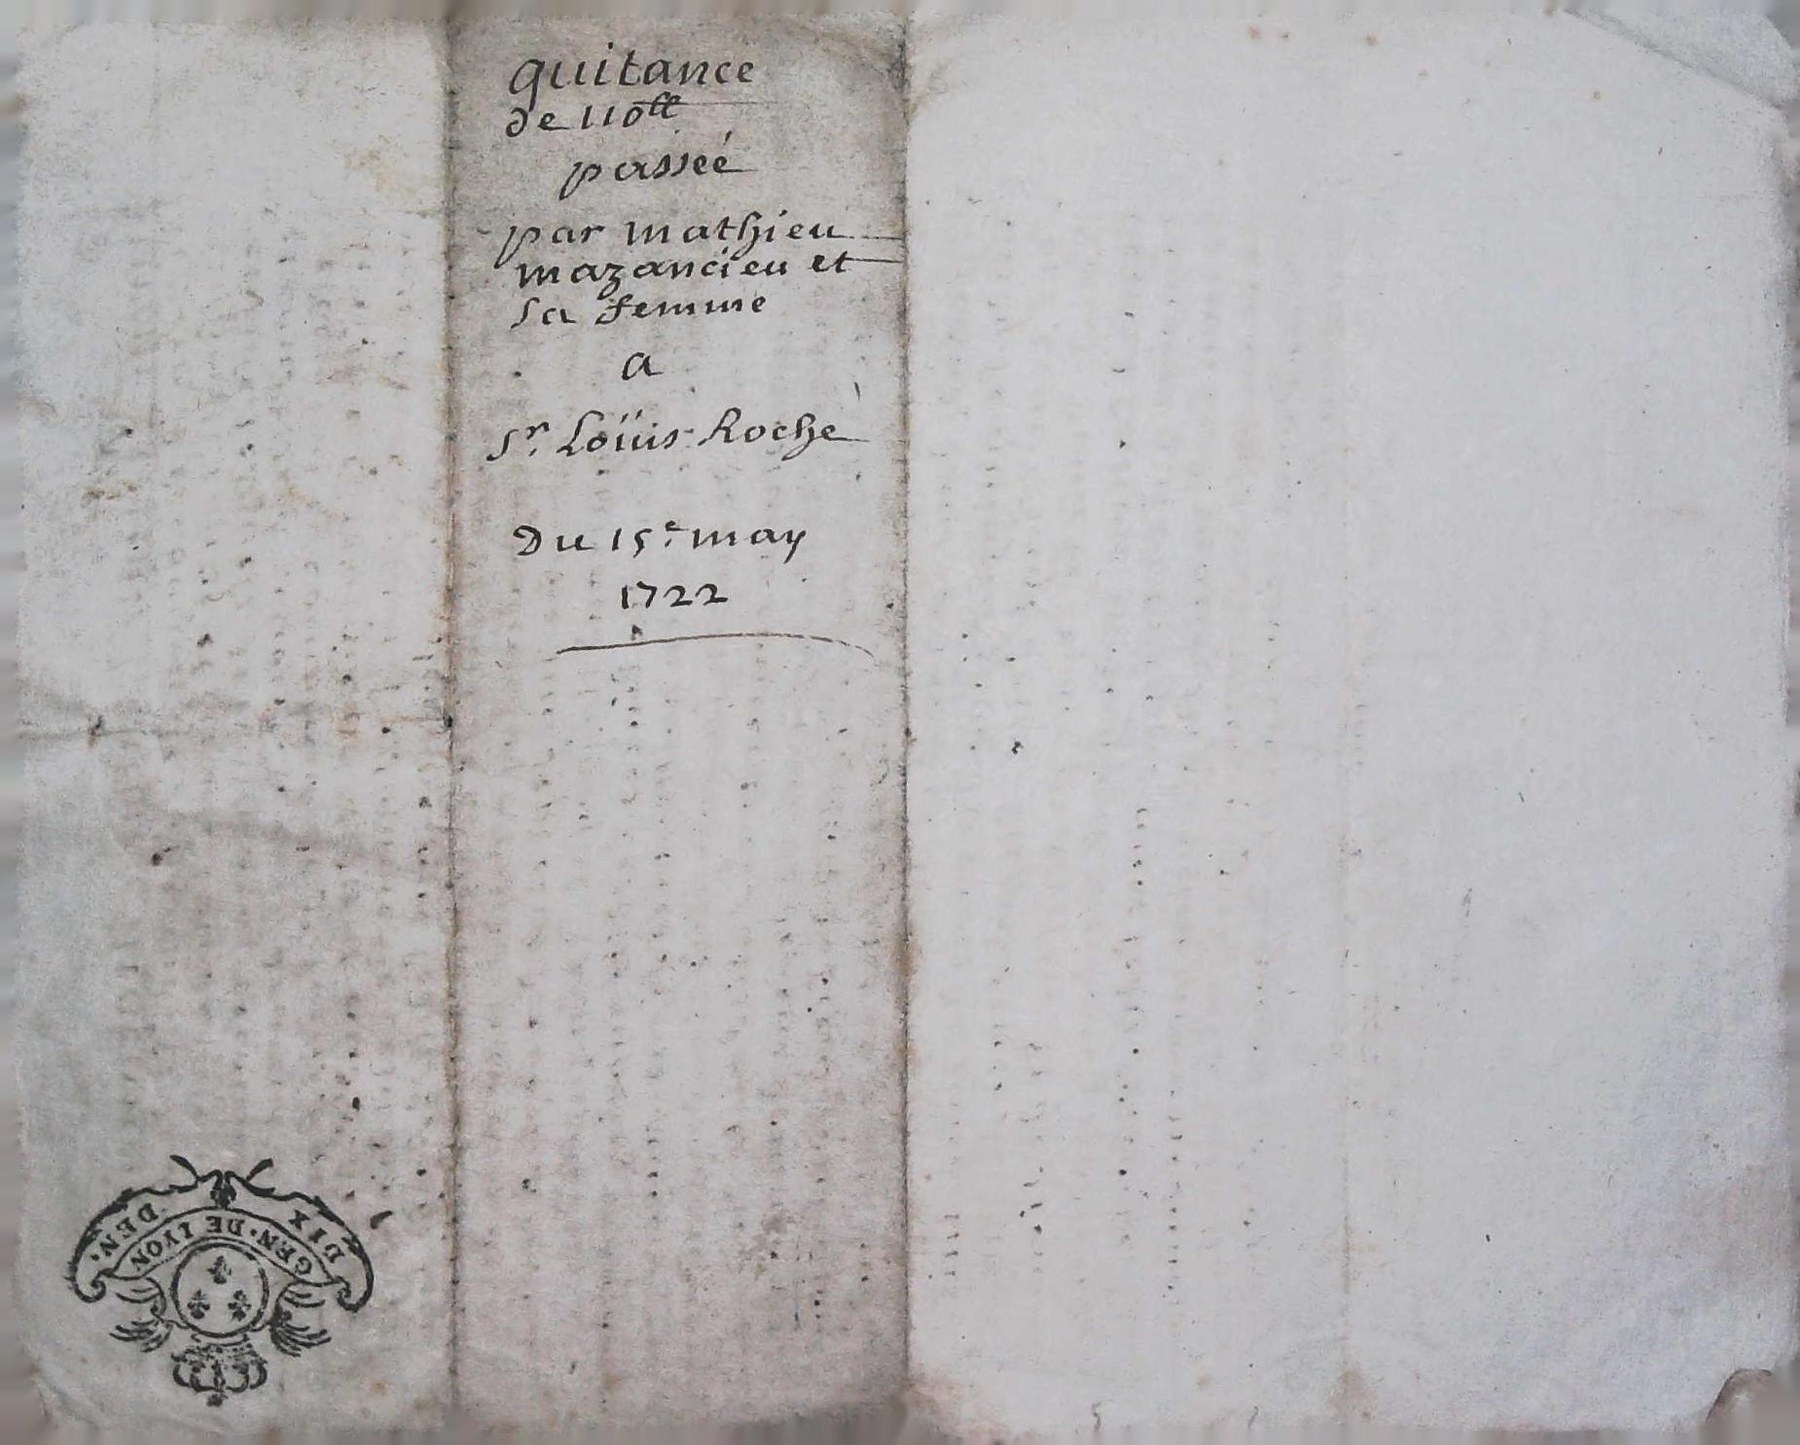 quitance
de 110ll
passeé
par mathieu
mazancieu et
sa femme
a
Sr. Loüis Roche
Du 15e. may
1722
DIX DEN.
GEN. DE LYON